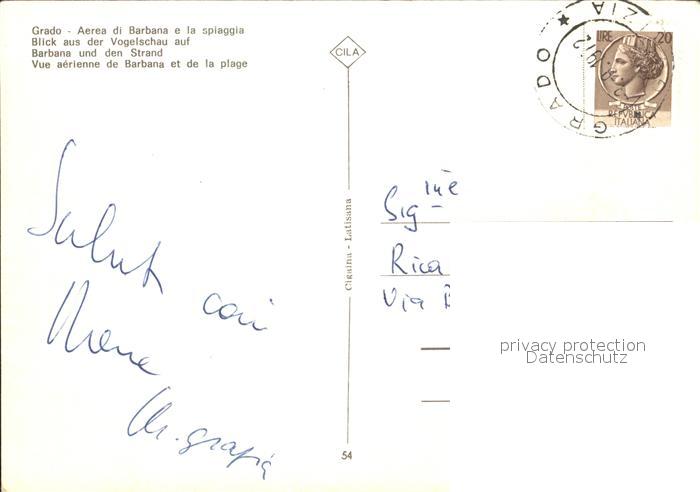 Grado - Aerea di Barbana e la spiaggia
Blick aus der Vogelschau auf
Barbana und den Strand
Vue aérienne de Barbana et de la plage
CILA
GRADO
LIRE 20
POSTE
REPVBBLICA
ITALIANA
Cigaina - Latisana
Saluti
cari
Sig ine
Rica
Via
privacy protection
Datenschutz
54